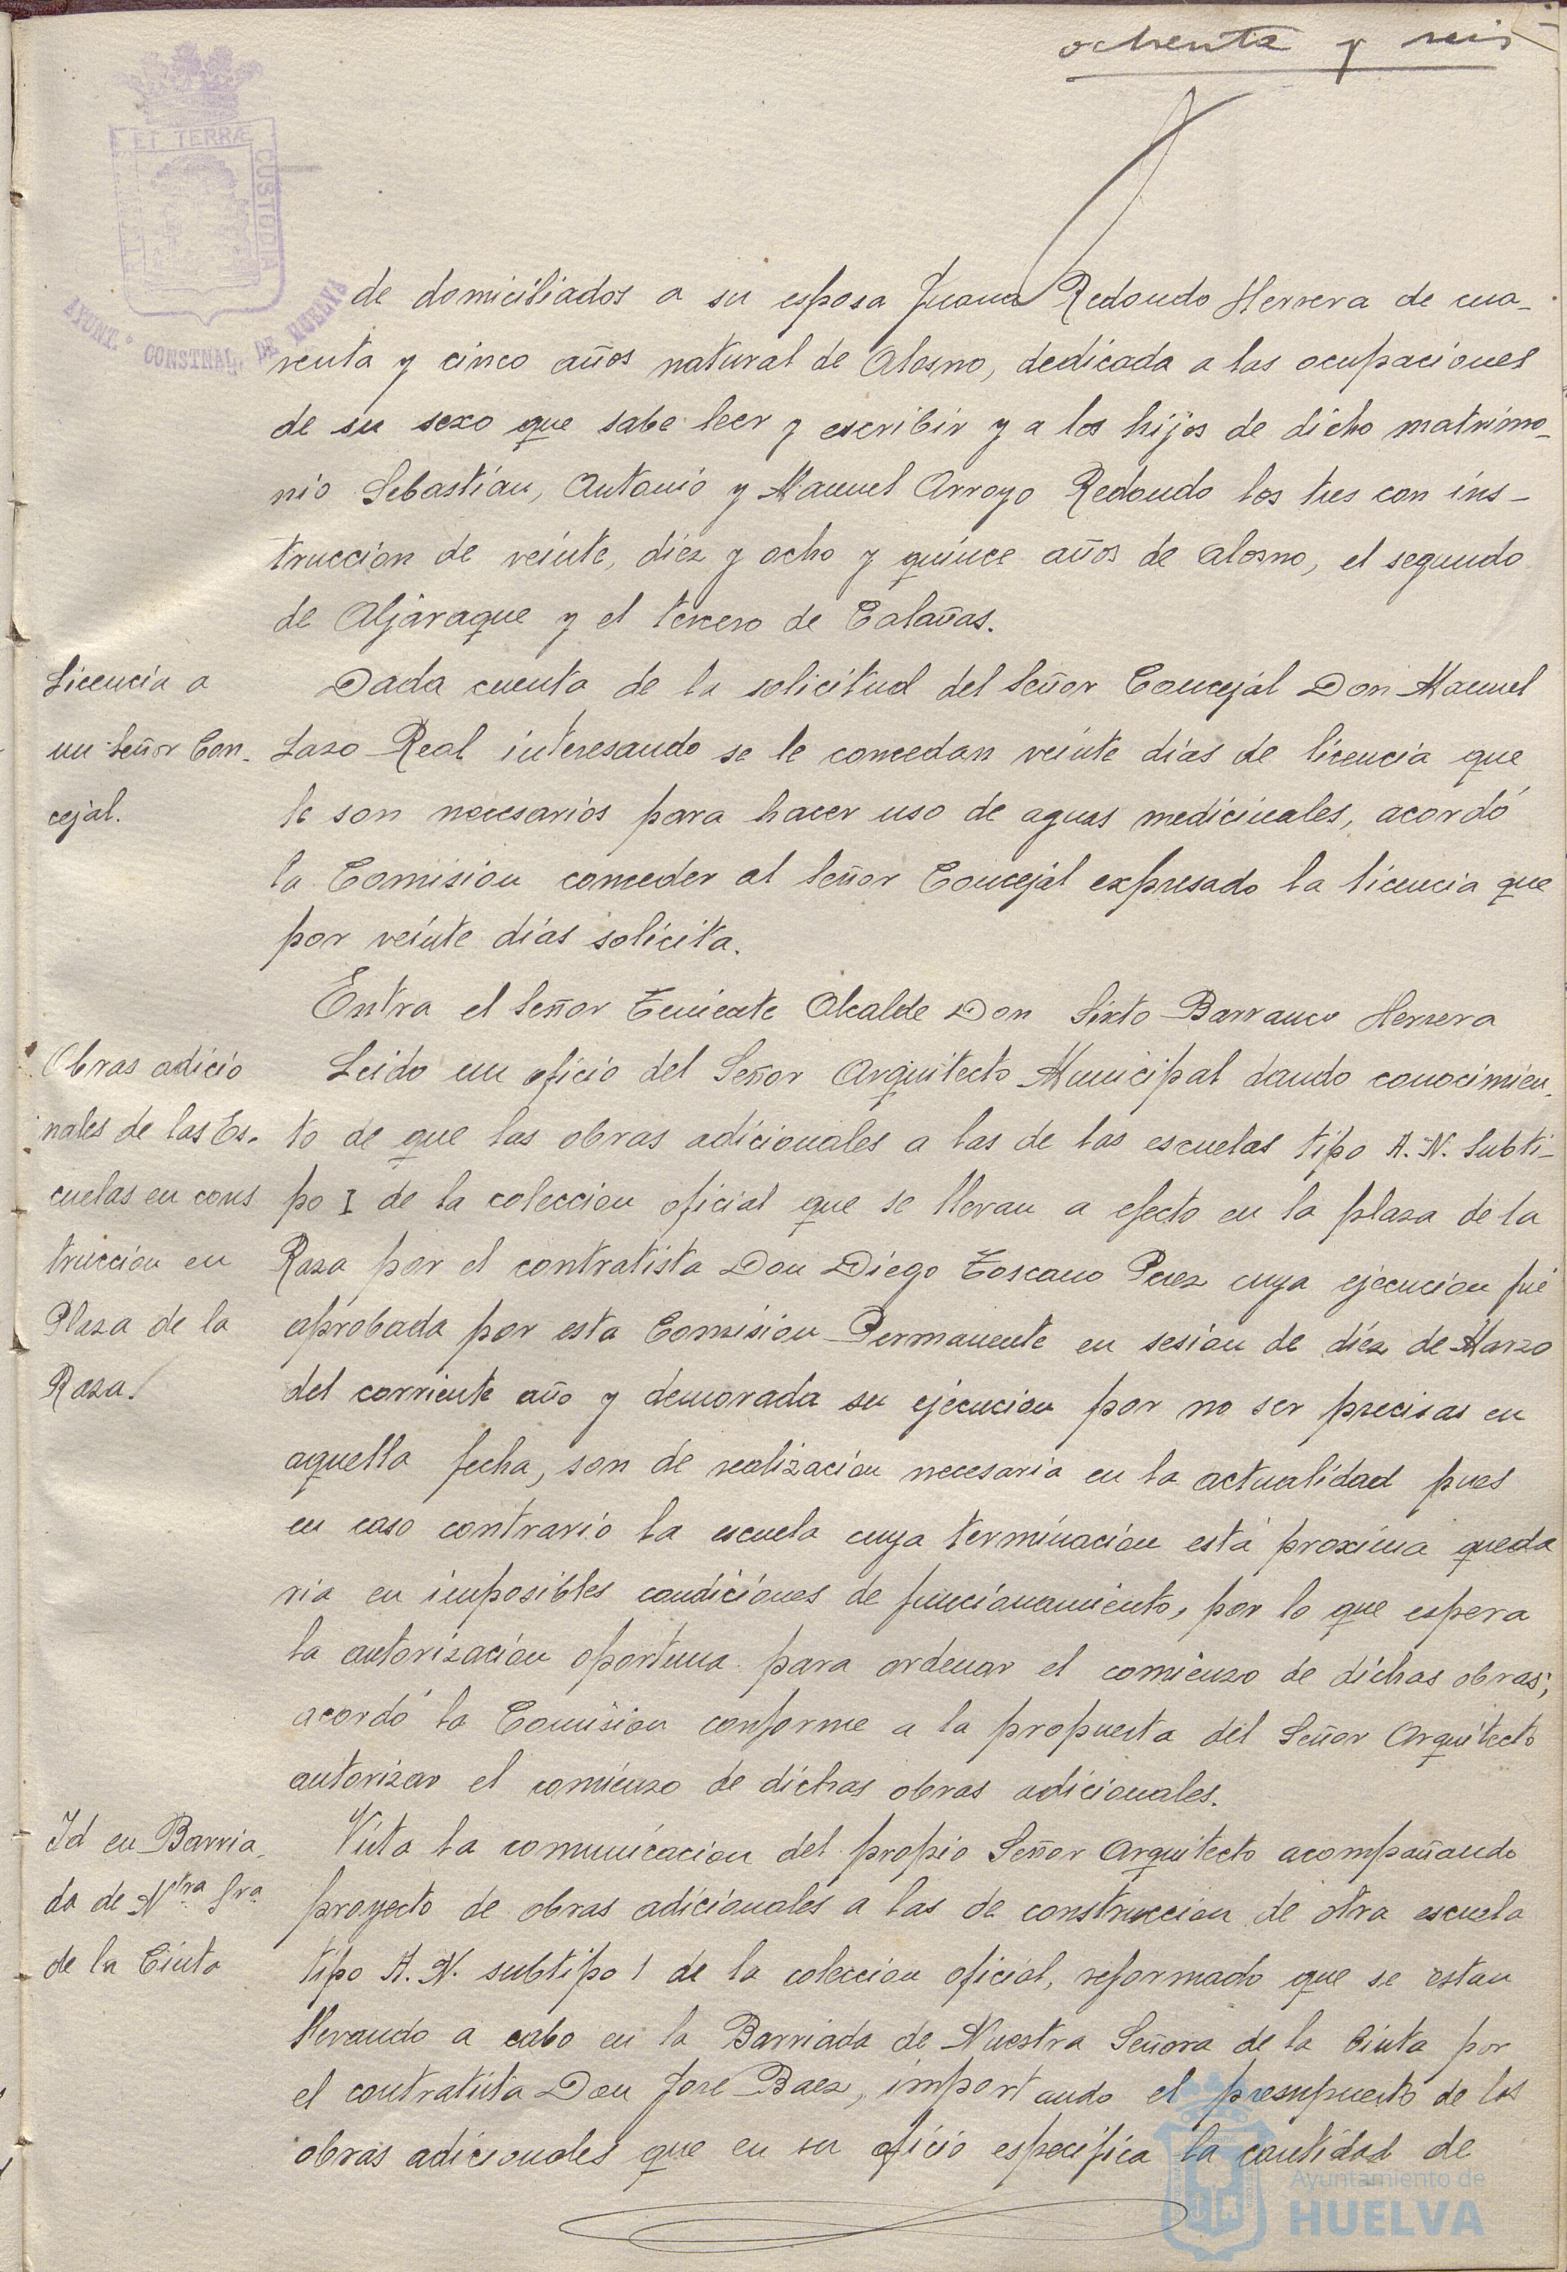 ochenta y seis
ET TERRÆ
CUSTODIA
AYUNT.º CONSTNAL. DE HUELVA
de domiciliados a su esposa Juana Redondo Herrera de cua-
renta y cinco años natural de Alosno, dedicada a las ocupaciones
de su sexo que sabe leer y escribir y a los hijos de dicho matrimo-
nio Sebastián, Antonio y Manuel Arroyo Redondo los tres con ins-
trucción de veinte, diez y ocho y quince años de Alosno, el segundo
de Aljaraque y el tercero de Calañas.
Licencia a
un Señor Con-
cejal.
Dada cuenta de la solicitud del Señor Concejal Don Manuel
Lazo Real interesando se le concedan veinte días de licencia que
le son necesarios para hacer uso de aguas medicinales, acordó
la Comision conceder al Señor Concejal expresado la licencia que
por veinte días solicita.
Entra el Señor Teniente Alcalde Don Sixto Barranco Herrera
Obras adicio
nales de las Es-
cuelas en cons
trucción en
Plaza de la
Raza.
Leido un oficio del Señor Arquitecto Municipal dando conocimien-
to de que las obras adicionales a las de las escuelas tipo A. N. Subti-
po I de la coleccion oficial que se llevan a efecto en la plaza de la
Raza por el contratista Don Diego Toscano Perez cuya ejecucion fué
aprobada por esta Comision Permanente en sesión de diez de Marzo
del corriente año y demorada su ejecucion por no ser precisas en
aquella fecha, son de realización necesaria en la actualidad pues
en caso contrario la escuela cuya terminación está proxima queda
ria en imposibles condiciones de funcionamiento, por lo que espera
la autorización oportuna para ordenar el comienzo de dichas obras;
acordó la Comision conforme a la propuesta del Señor Arquitecto
autorizar el comienzo de dichas obras adicionales.
Id en Barria-
da de Ntra Sra
de la Cinta
Vista la comunicacion del propio Señor Arquitecto acompañando
proyecto de obras adicionales a las de construccion de otra escuela
tipo A. N. subtipo 1 de la coleccion oficial, reformado que se estan
llevando a cabo en la Barriada de Nuestra Señora de la Cinta por
el contratista Don Jose Baez, importando el presupuesto de las
obras adicionales que en su oficio especifica la cantidad de
Ayuntamiento de
HUELVA